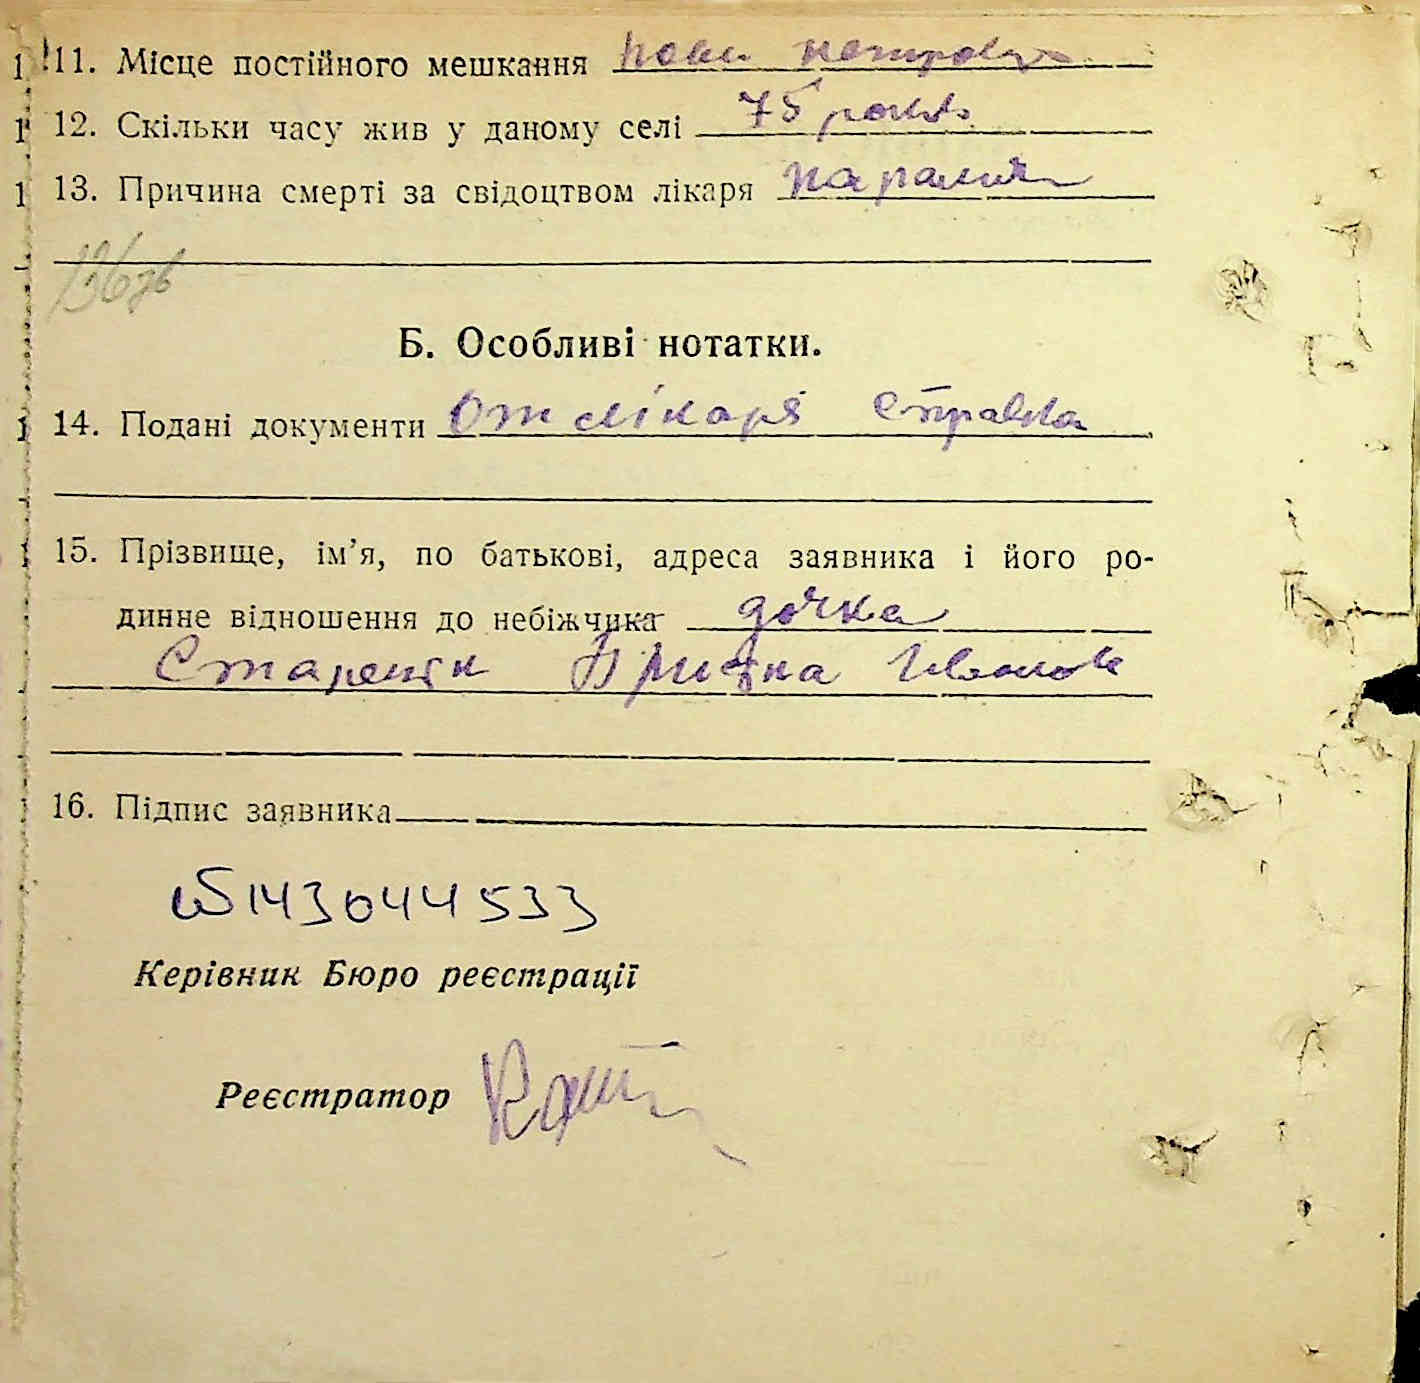 11. Місце постійного мешкання нови петровц
12. Скільки часу жив у даному селі 75 років
13. Причина смерті за свідоцтвом лікаря параліч
Б. Особливі нотатки.
14. Подані документи От лікаря справка
15. Прізвище, ім'я, по батькові, адреса заявника і його ро-
динне відношення до небіжчика дочка
Івановн
16. Підпис заявника
143044533
Керівник Бюро реєстрації
Реєстратор